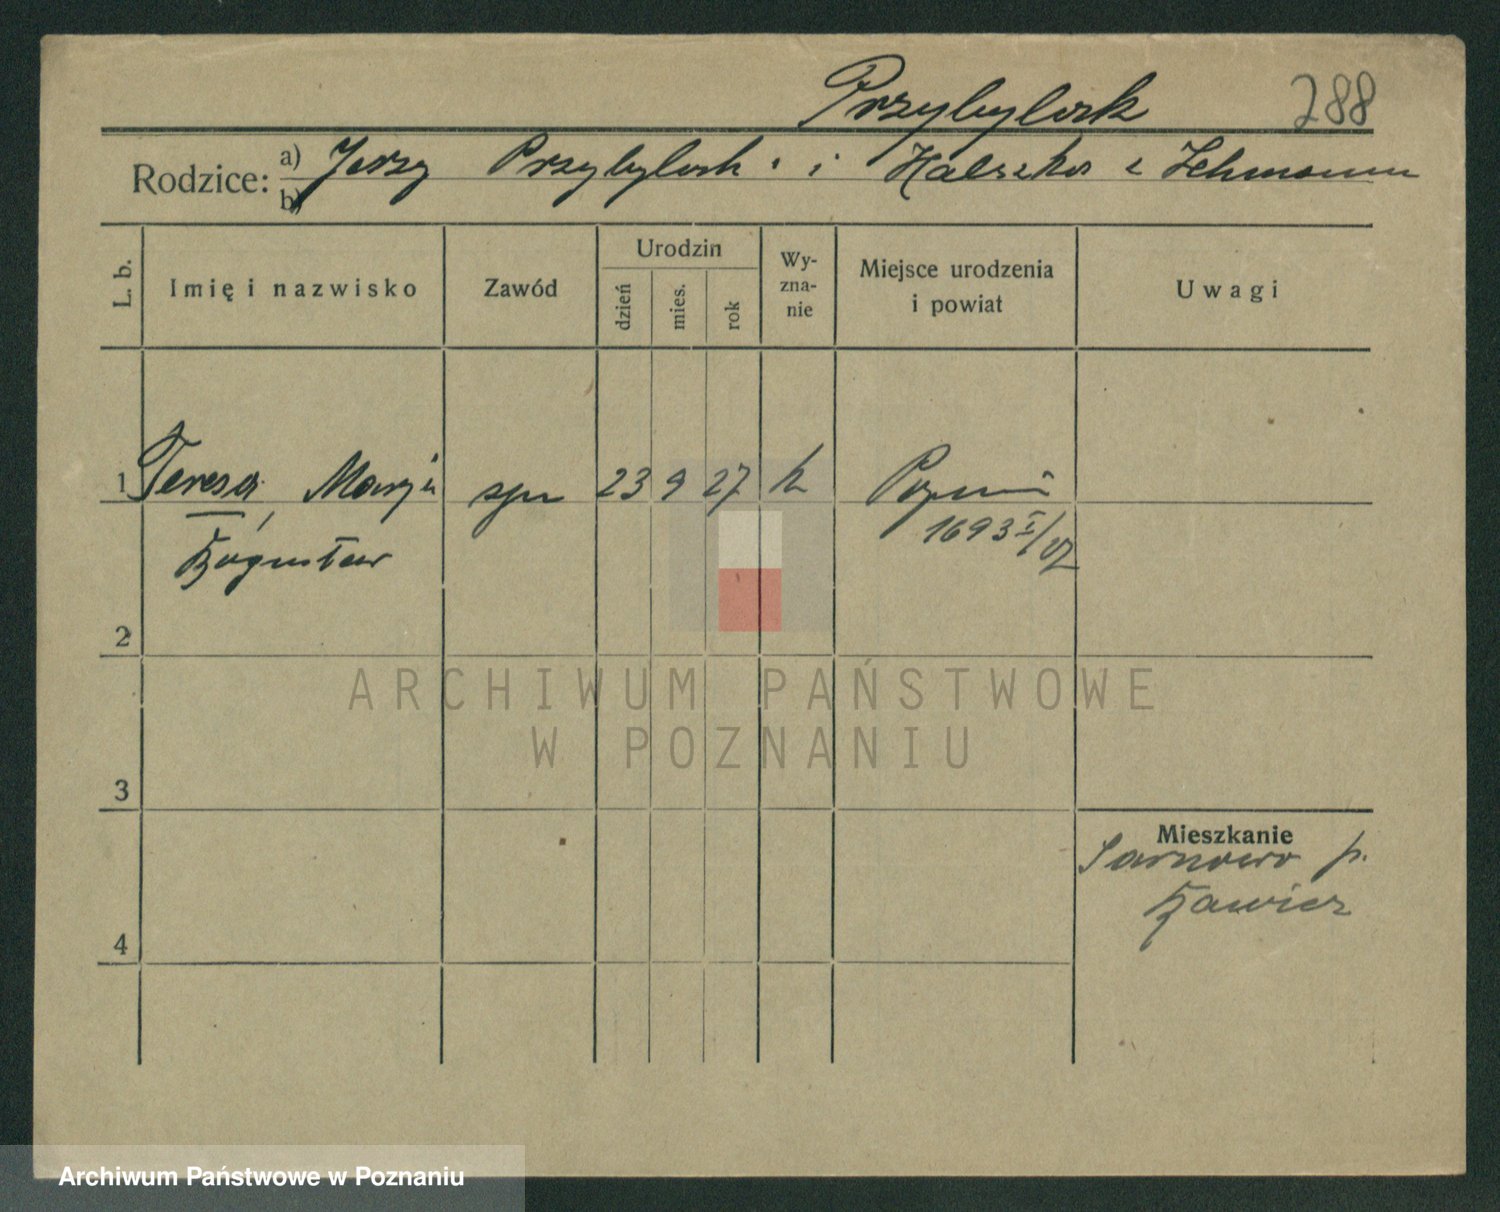 Przybylak 288
Rodzice: a) Jerzy Przybylak i Halszka z Lehmann
b)
L. b.
Imię i nazwisko
Zawód
Urodzin
dzień
mies.
rok
Wy-
zna-
nie
Miejsce urodzenia
i powiat
Uwagi
1 Teresa, Marja 23 9 27 k Poznań
Bogusław 1693 I/
2
3
4
Mieszkanie
Sarnowo p.
Rawicz
ARCHIWUM PAŃSTWOWE
W POZNANIU
Archiwum Państwowe w Poznaniu